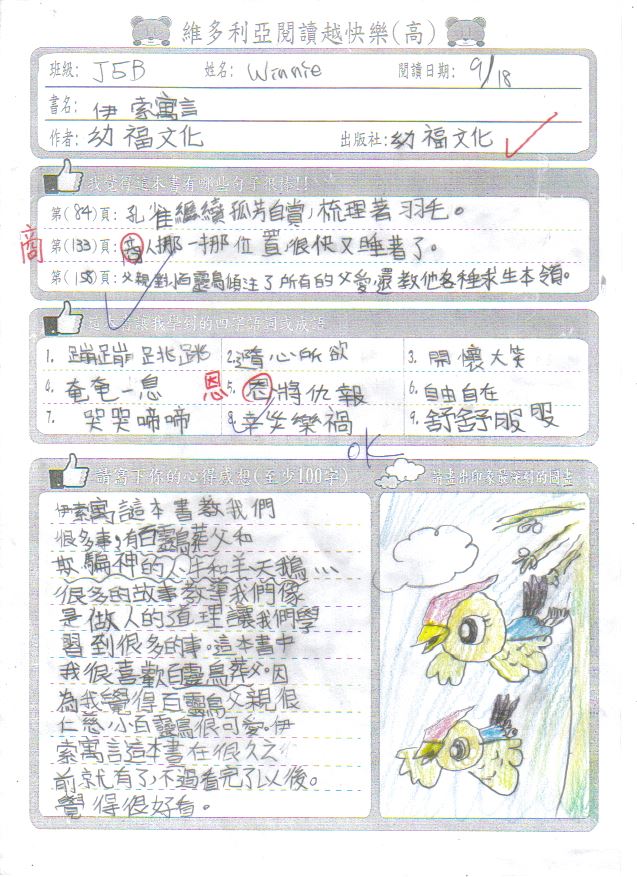 維多利亞閱讀越快樂(高)
班級: J5B 姓名: Winnie 閱讀日期: 9/18
書名: 伊索寓言
作者: 幼福文化 出版社: 幼福文化
我覺得這本書有哪些句子很棒!!
第(84)頁: 孔雀繼續孤芳自賞,梳理著羽毛。
商
第(133)頁: 商人挪一挪位置,很快又睡著了。
第(158)頁: 父親對小百靈鳥傾注了所有的父愛,還教他各種求生本領。
這本書讓我學到的四字語詞或成語
1. 蹦蹦跳跳 2. 隨心所欲 3. 開懷大笑
4. 奄奄一息 恩 5. 恩將仇報 6. 自由自在
7. 哭哭啼啼 8. 幸災樂禍 9. 舒舒服服
OK
請寫下你的心得感想(至少100字) 請畫出印象最深刻的圖畫
伊索寓言這本書教我們
很多事,有百靈鳥葬父和
欺騙神的人、羊和天鵝...
很多的故事教導我們像
是做人的道理讓我們學
習到很多的事。這本書中
我很喜歡百靈鳥葬父。因
為我覺得百靈鳥父親很
仁慈,小百靈鳥很可愛。伊
索寓言這本書在很久之
前就有了,不過看完了以後。
覺得很好看。